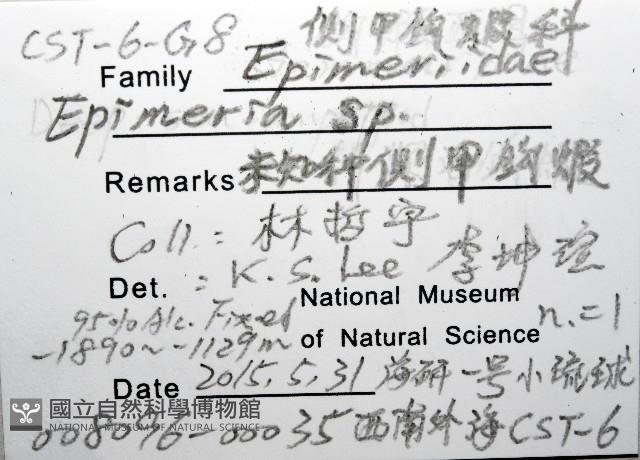 CST-6-G8 側甲鉤蝦科
Family Epimeriidae
Epimeria sp.
Remarks 未知种側甲鉤蝦
Coll.: 林哲宇
Det.: K.S. Lee 李坤瑄
95% Alc. Fixed National Museum n.=1
-1890~-1129m of Natural Science
Date 2015,5,31 海研一号小琉球
國立自然科學博物館
NATIONAL MUSEUM OF NATURAL SCIENCE
008076-00035 西南外海 CST-6